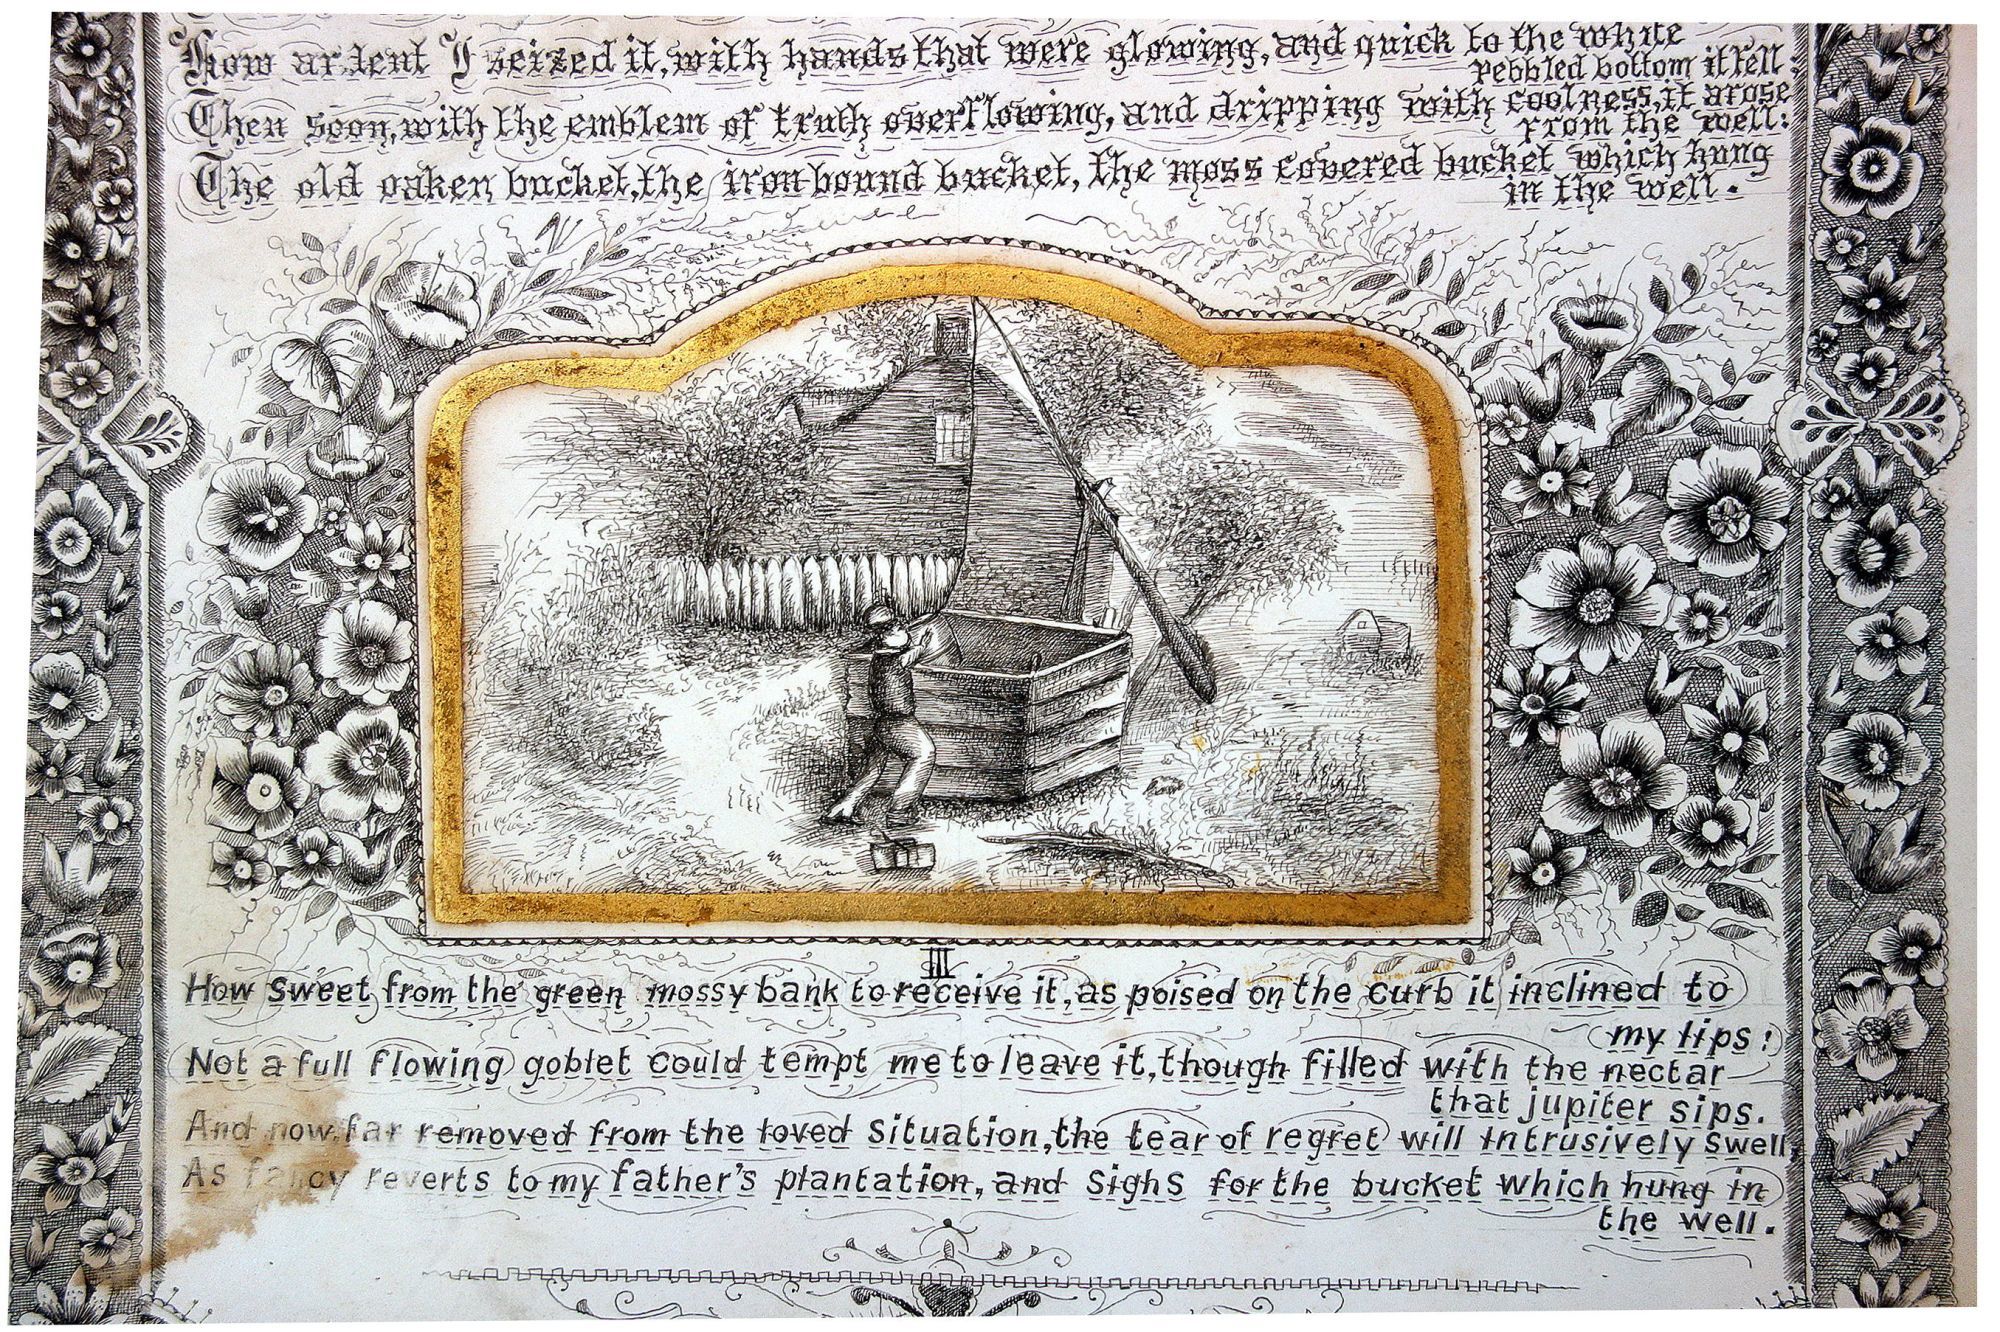 How ardent I seized it, with hands that were glowing, and quick to the white
pebbled bottom it fell;
Then soon, with the emblem of truth overflowing, and dripping with coolness, it arose
from the well:
The old oaken bucket, the iron bound bucket, the moss covered bucket which hung
in the well.
III
How sweet from the green mossy bank to receive it, as poised on the curb it inclined to
my lips!
Not a full flowing goblet could tempt me to leave it, though filled with the nectar
that jupiter sips.
And now, far removed from the loved situation, the tear of regret will intrusively swell,
As fancy reverts to my father's plantation, and sighs for the bucket which hung in
the well.